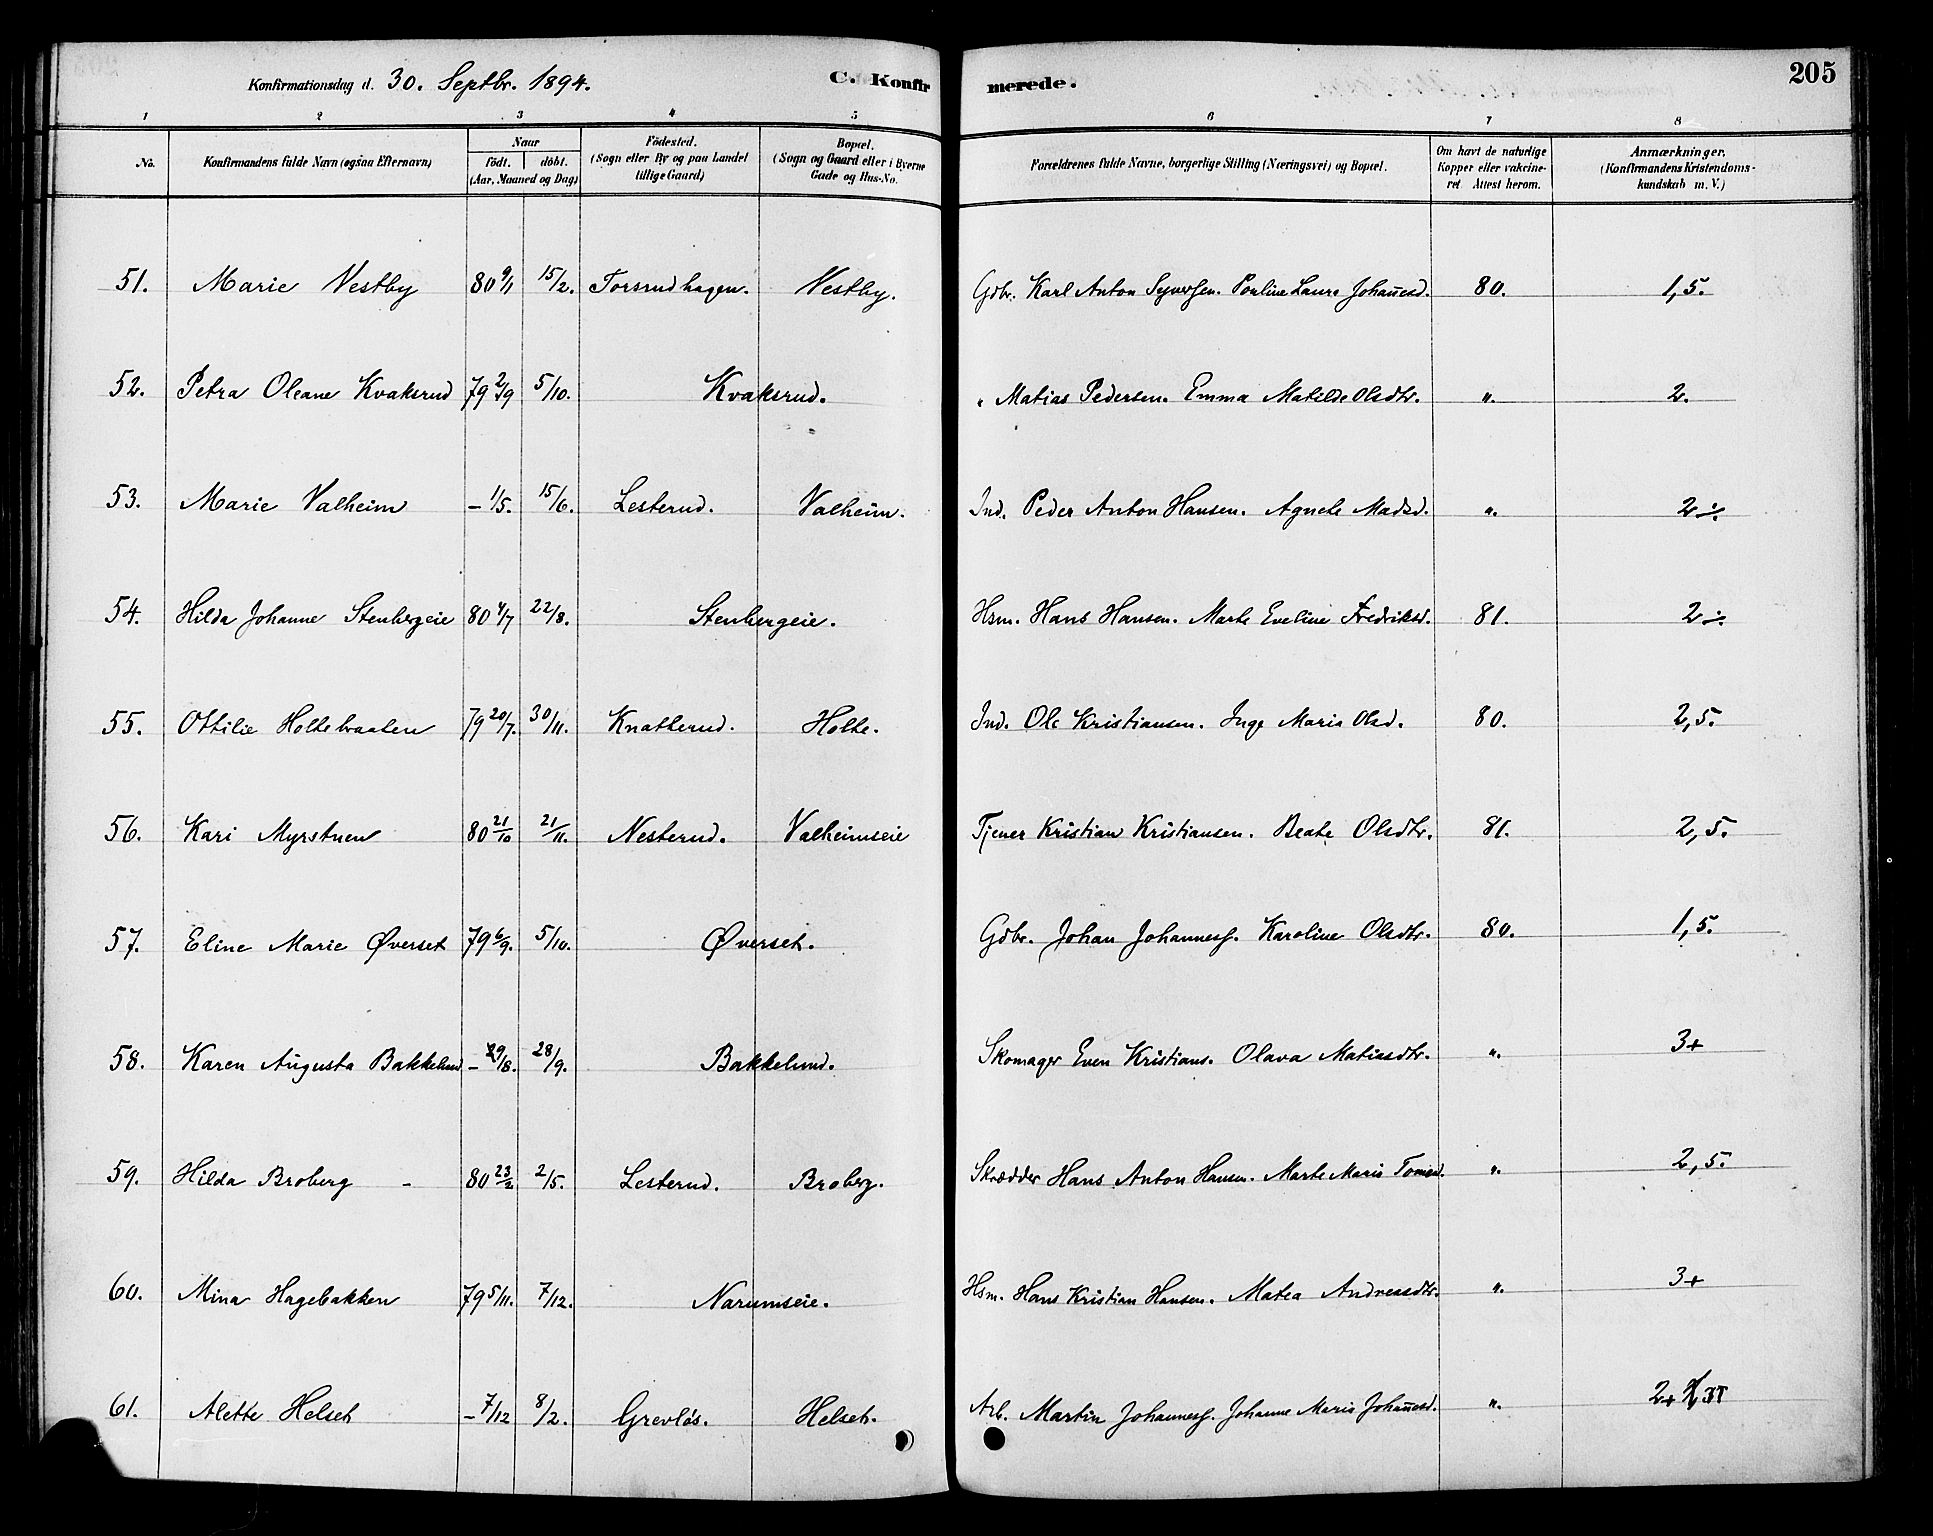 Konfirmationsdag d. 30. Septbr. 1894. C. Konfirmerede. 205
1 2 3 4 5 6 7 8
No. Konfirmandens fulde Navn (ogsaa Efternavn) Naar födt. döbt. (Aar, Maaned og Dag) Födested. (Sogn eller By og paa Landet tillige Gaard) Bopæl. (Sogn og Gaard eller i Byerne Gade og Hus-No. Forældrenes fulde Navne, borgerlige Stilling (Næringsvei) og Bopæl. Om havt de naturlige Kopper eller vakcineret. Attest herom. Anmærkninger. (Konfirmandens Kristendomskundskab m. V.)
51. Marie Vestby 80 9/1 15/2. Torsrudhagen. Vestby. Gdbr. Karl Anton Syversen. Pouline Laura Johañesd. 80. 1,5.
52. Petra Oleane Kvaksrud 79 2/9 5/10. Kvaksrud. " Matias Pedersen. Emma Matilde Olsdtr. ". 2.
53. Marie Valheim – 1/5. 15/6. Lesterud. Valheim. Ind. Peder Anton Hansen. Agnete Madsd. ". 2 ÷.
54. Hilda Johanne Stenbergeie 80 4/7 22/8. Stenbergeie. Hsm. Hans Hansen. Marte Eveline Fredriksd. 81. 2 ÷.
55. Ottilie Holtebraaten 79 20/7. 30/11. Knatterud. Holte. Ind. Ole Kristiansen. Inge Maria Olsd. 80. 2,5.
56. Kari Myrstuen 80 21/10 21/11. Nesterud. Valheimseie Tjener Kristian Kristiansen. Beate Olsdtr. 81. 2,5.
57. Eline Marie Øverset 79 6/9. 5/10. Øverset. Gdbr. Johan Johannesf. Karoline Olsdtr. 80. 1,5.
58. Karen Augusta Bakkelund – 29/8. 28/9. Bakkelund. Skomager Even Kristians. Olava Matiasdtr. ". 3+
59. Hilda Broberg – 80 23/2 2/5. Lesterud. Broberg. Skrædder Hans Anton Hansen. Marte Maria Tomasd. ". 2,5.
60. Mina Hagebakken 79 5/11. 7/12. Narumseie. Hsm. Hans Kristian Hansen. Matea Andreasdtr. ". 3+
61. Alette Helset – 7/12 8/2. Grevlös. Helset. Arb. Martin Johannesf. Johanne Maria Johañesd. ". 2+